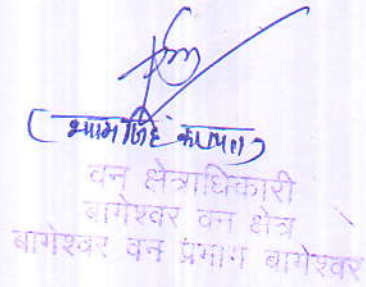 (श्याम सिंह करायत)
वन क्षेत्राधिकारी
बागेश्वर वन क्षेत्र
बागेश्वर वन प्रभाग बागेश्वर